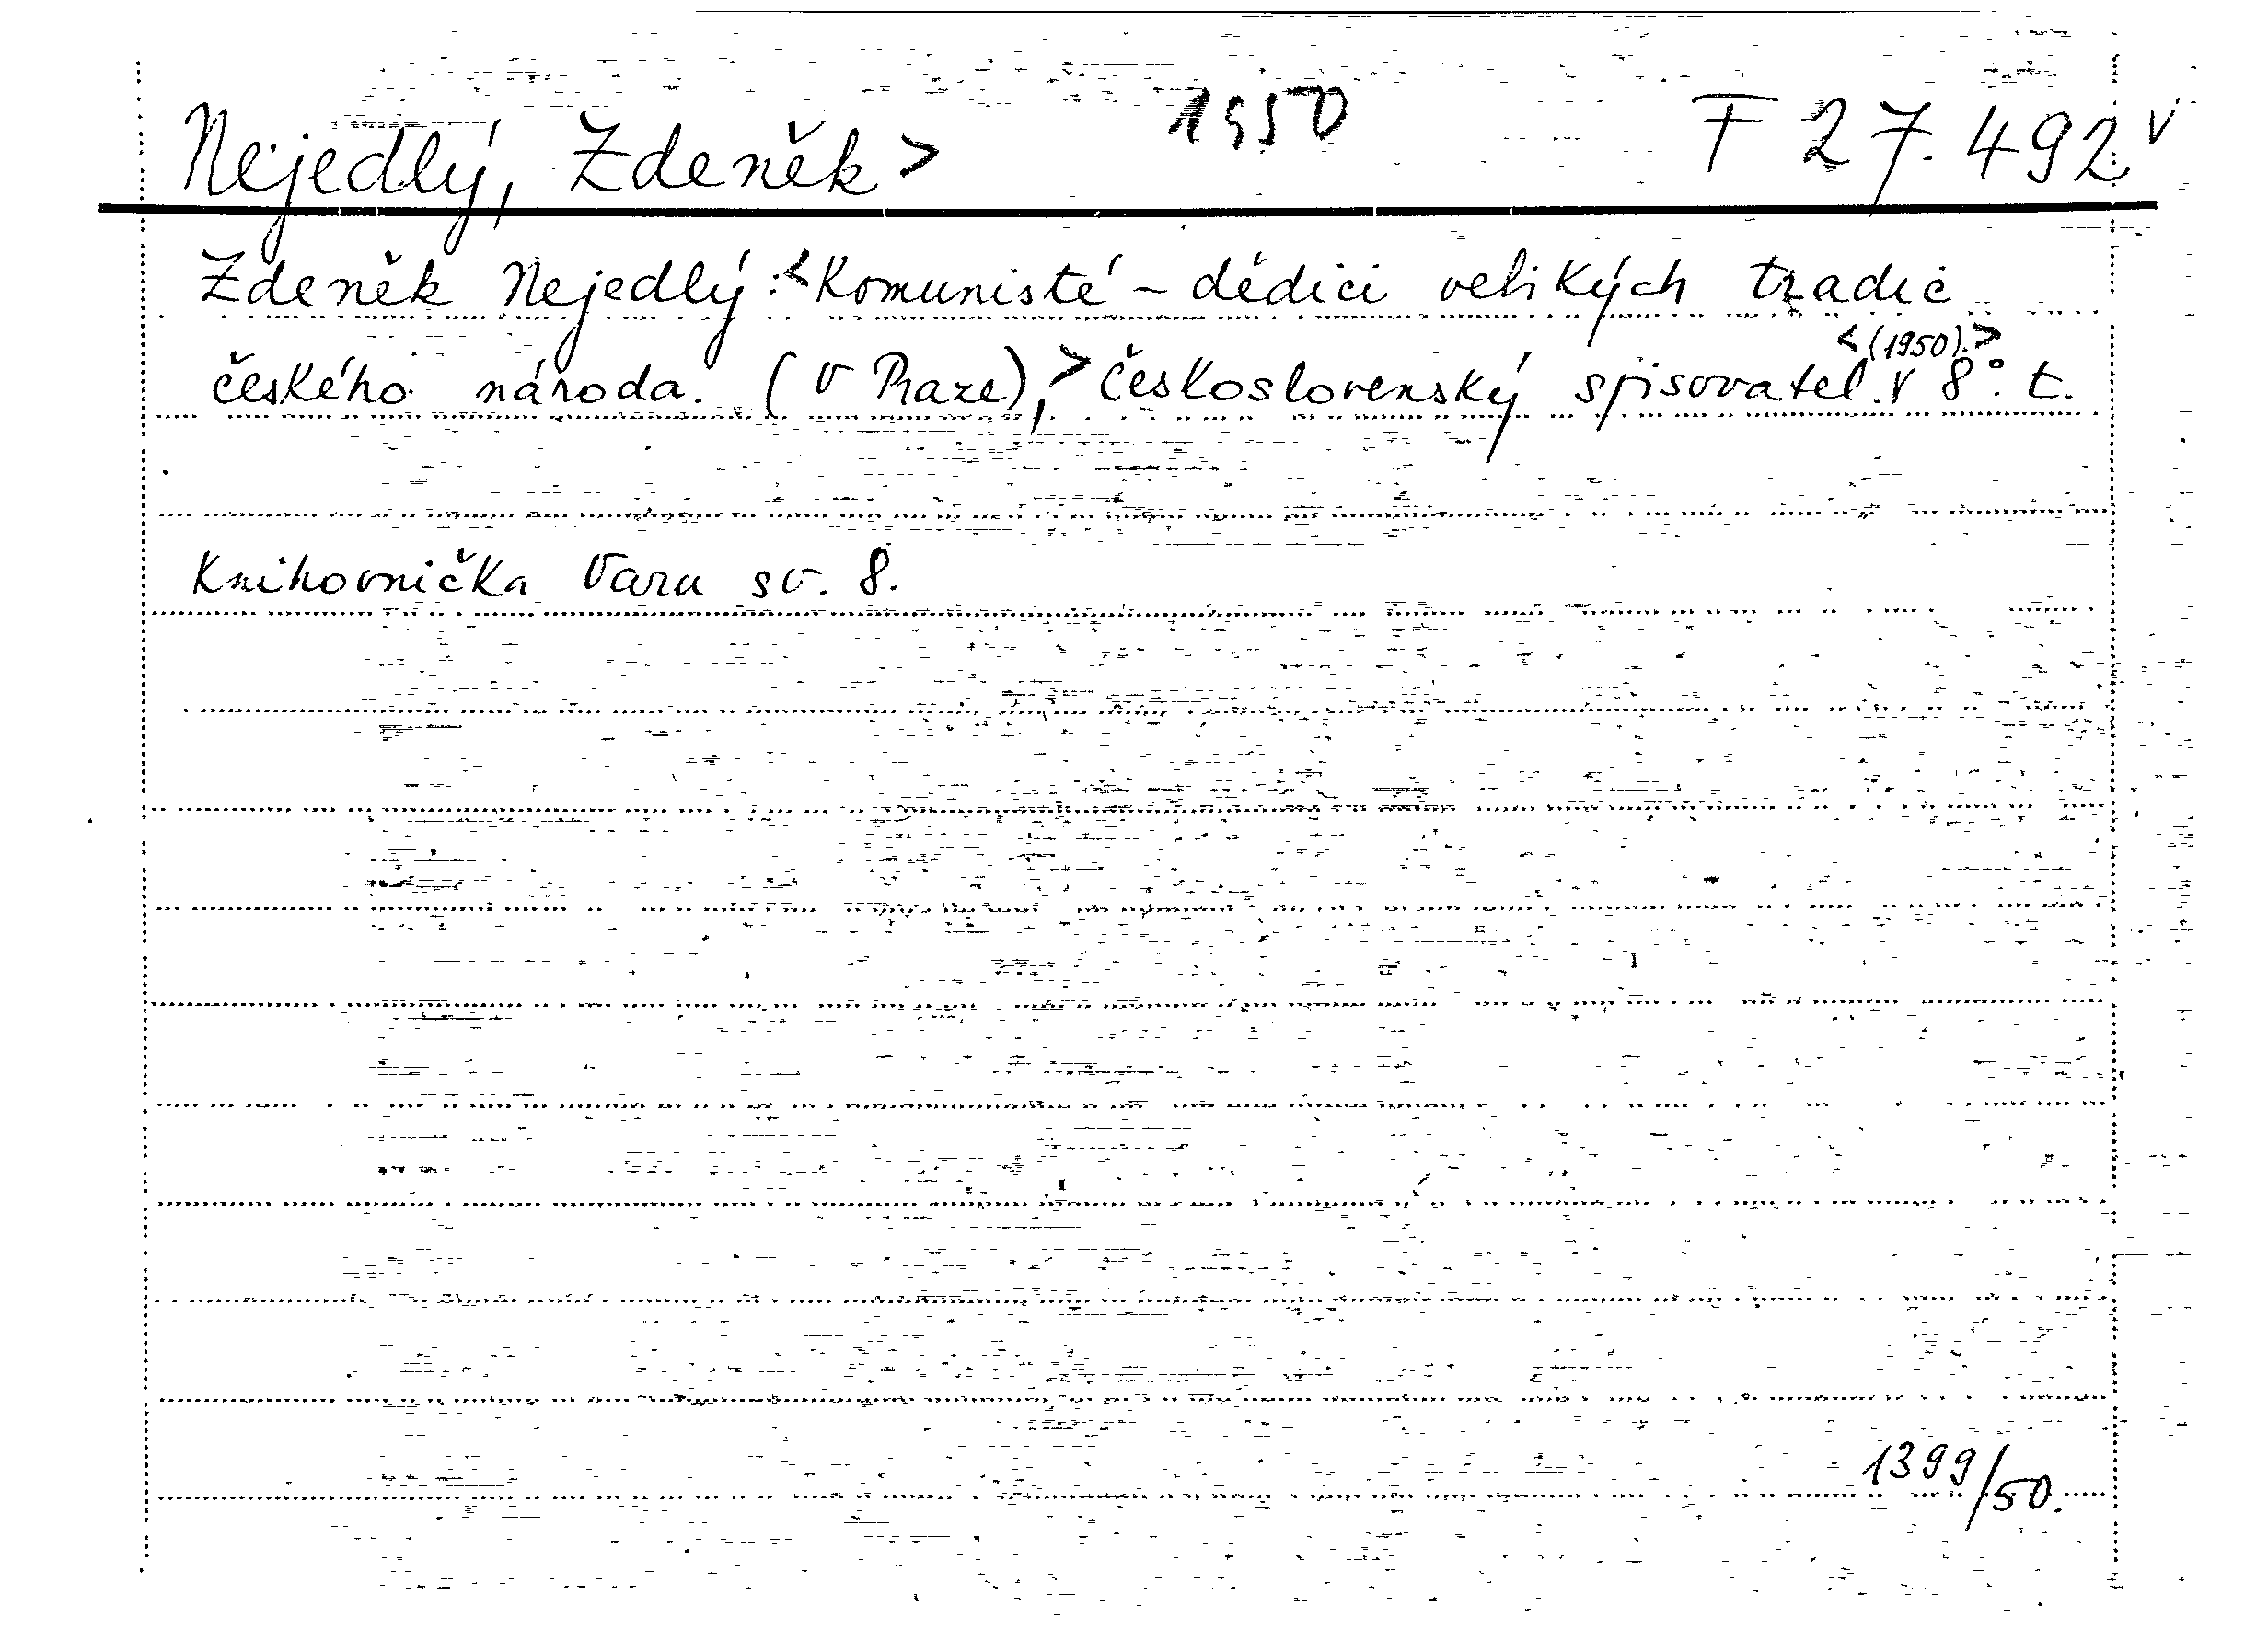 Nejedlý, Zdeněk> 1950 F 27.492
Zdeněk Nejedlý:<Komunisté – dědici velikých tradic
<(1950).>
českého národa. (V Praze),> Československý spisovatel. v 8°. t.
Knihovnička Varu sv. 8.
1399/50.